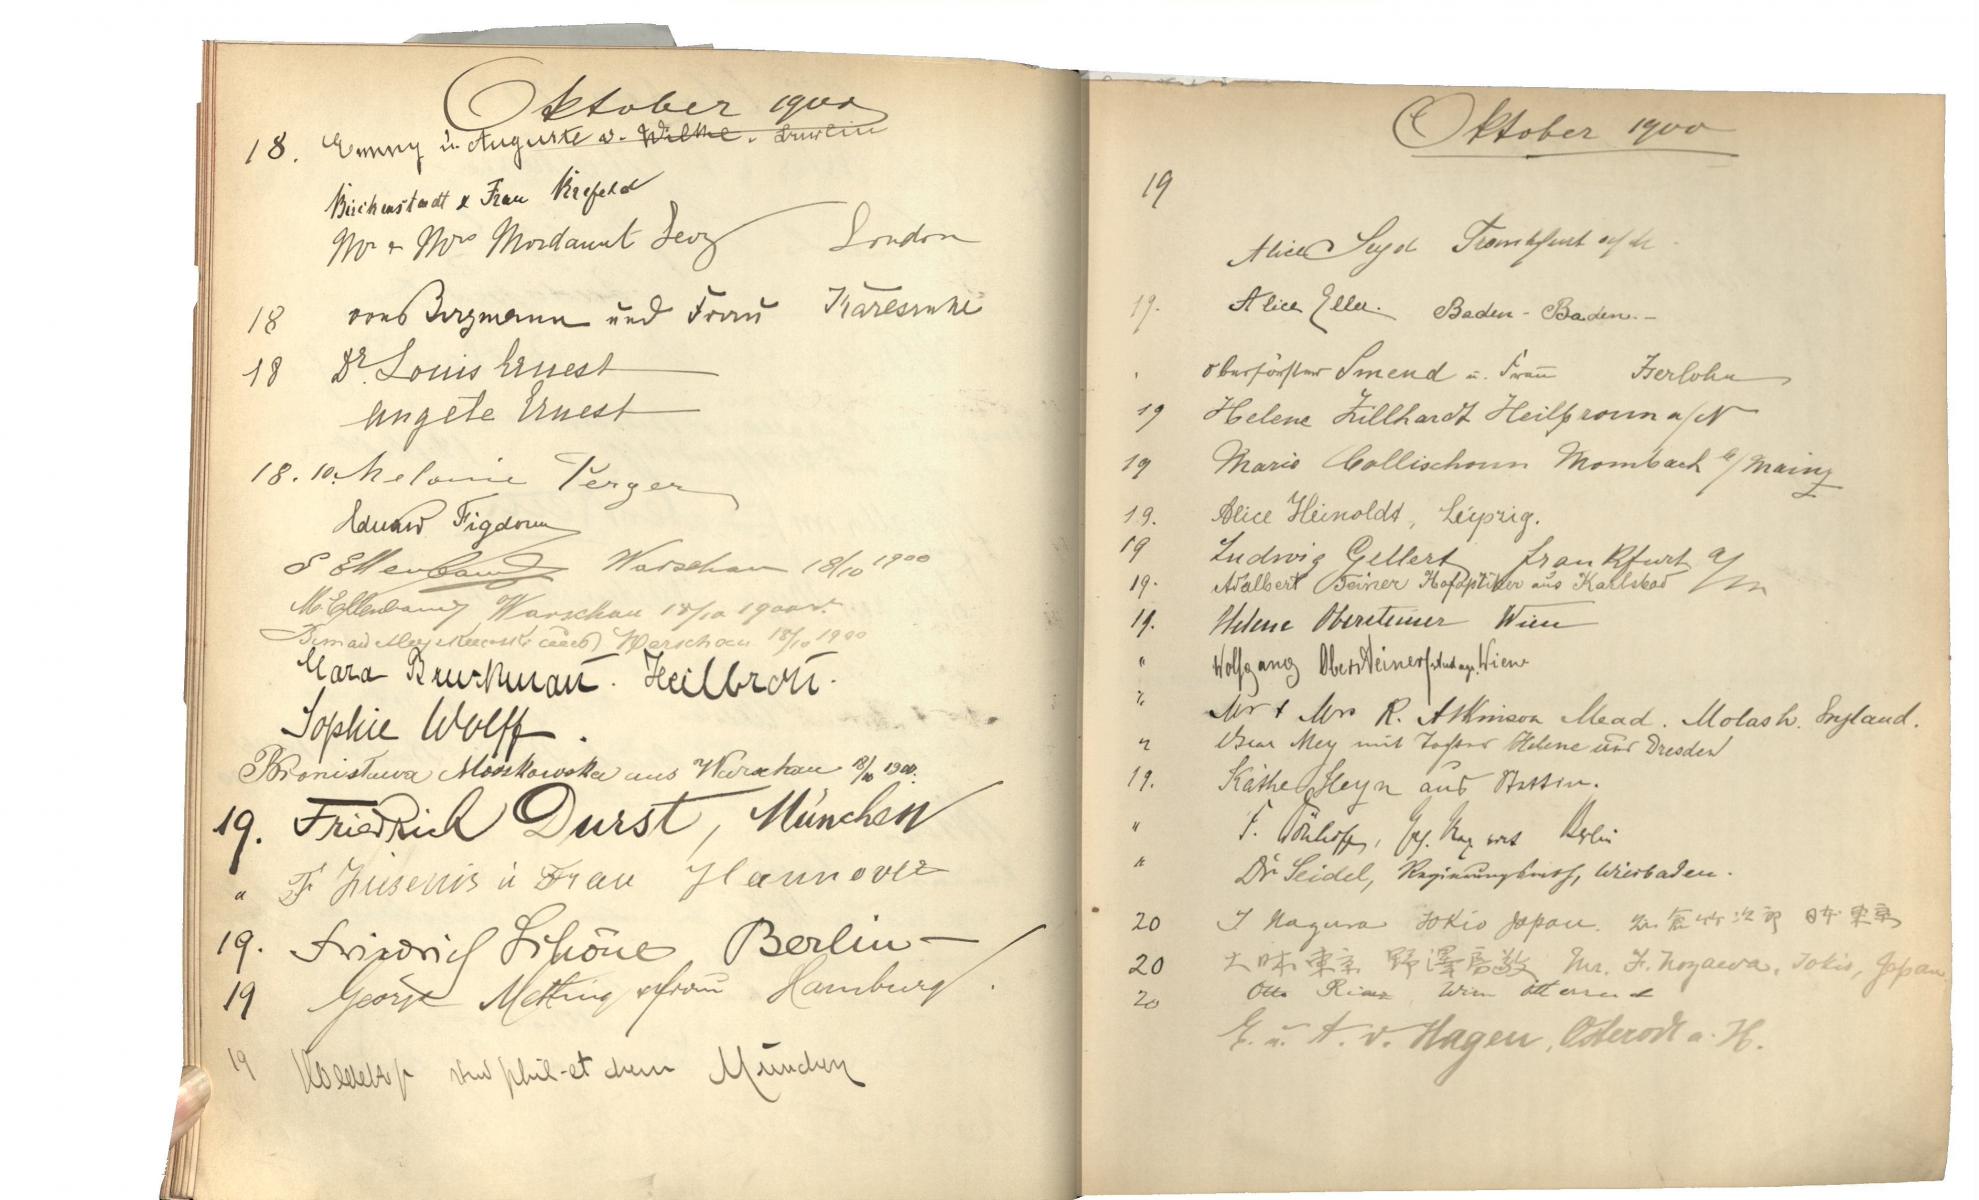 Oktober 1900
18. Emmy u. Auguste v. Wilke. Berlin
Birckenstaedt & Frau Krefeld
Mr & Mrs Mordaunt Levy London
18 von Bergmann und Frau Karlsruhe
18 Dr. Louis Ernest
Angete Ernest
18. 10. Melanie Perger
Eduard Figdor
S Ellenband Warschau 18/10 1900
M. Ellenband Warschau 18/10 1900
Warschau 18/10 1900
Clara Bruckmann. Heilbronn.
Sophie Wolff.
Bronisława Moszkowska aus Warschau 18/10 1900.
19. Friedrich Durst, München
" F u Frau Hannover
19. Friedrich Schöne Berlin –
19 George Metting & Frau Hamburg.
19 stud phil. et chem München
Oktober 1900
19
Alice Seyd Frankfurt a/M.
19. Alice Eller. Baden-Baden.-
Oberförster Smend u. Frau Iserlohn
19 Helene Zillhardt Heilbronn a/N
19 Marie Collischonn Mombach b/Mainz
19. Alice Heinoldt, Leipzig.
19 Ludwig Gellert, Frankfurt a/M
19. Adalbert Hofoptiker aus Karlsbad
19. Helene Obersteiner Wien
" Wolfgang Obersteiner Wien
" Mr & Mrs R. Atkinson Mead. Molash. England.
" Oscar Mey mit Tochter Helene aus Dresden
19. Käthe Heyn aus Stettin.
" F. Berlin
" Dr Seidel, Wiesbaden.
20 T Nagura Tokio Japan. 名倉竹次郎 日本 東京
20 大日本 東京 野澤房敬 Mr. F. Nozawa, Tokio, Japan
20 Otto Wien
E. u. A. v. Hagen, Osterode a. H.